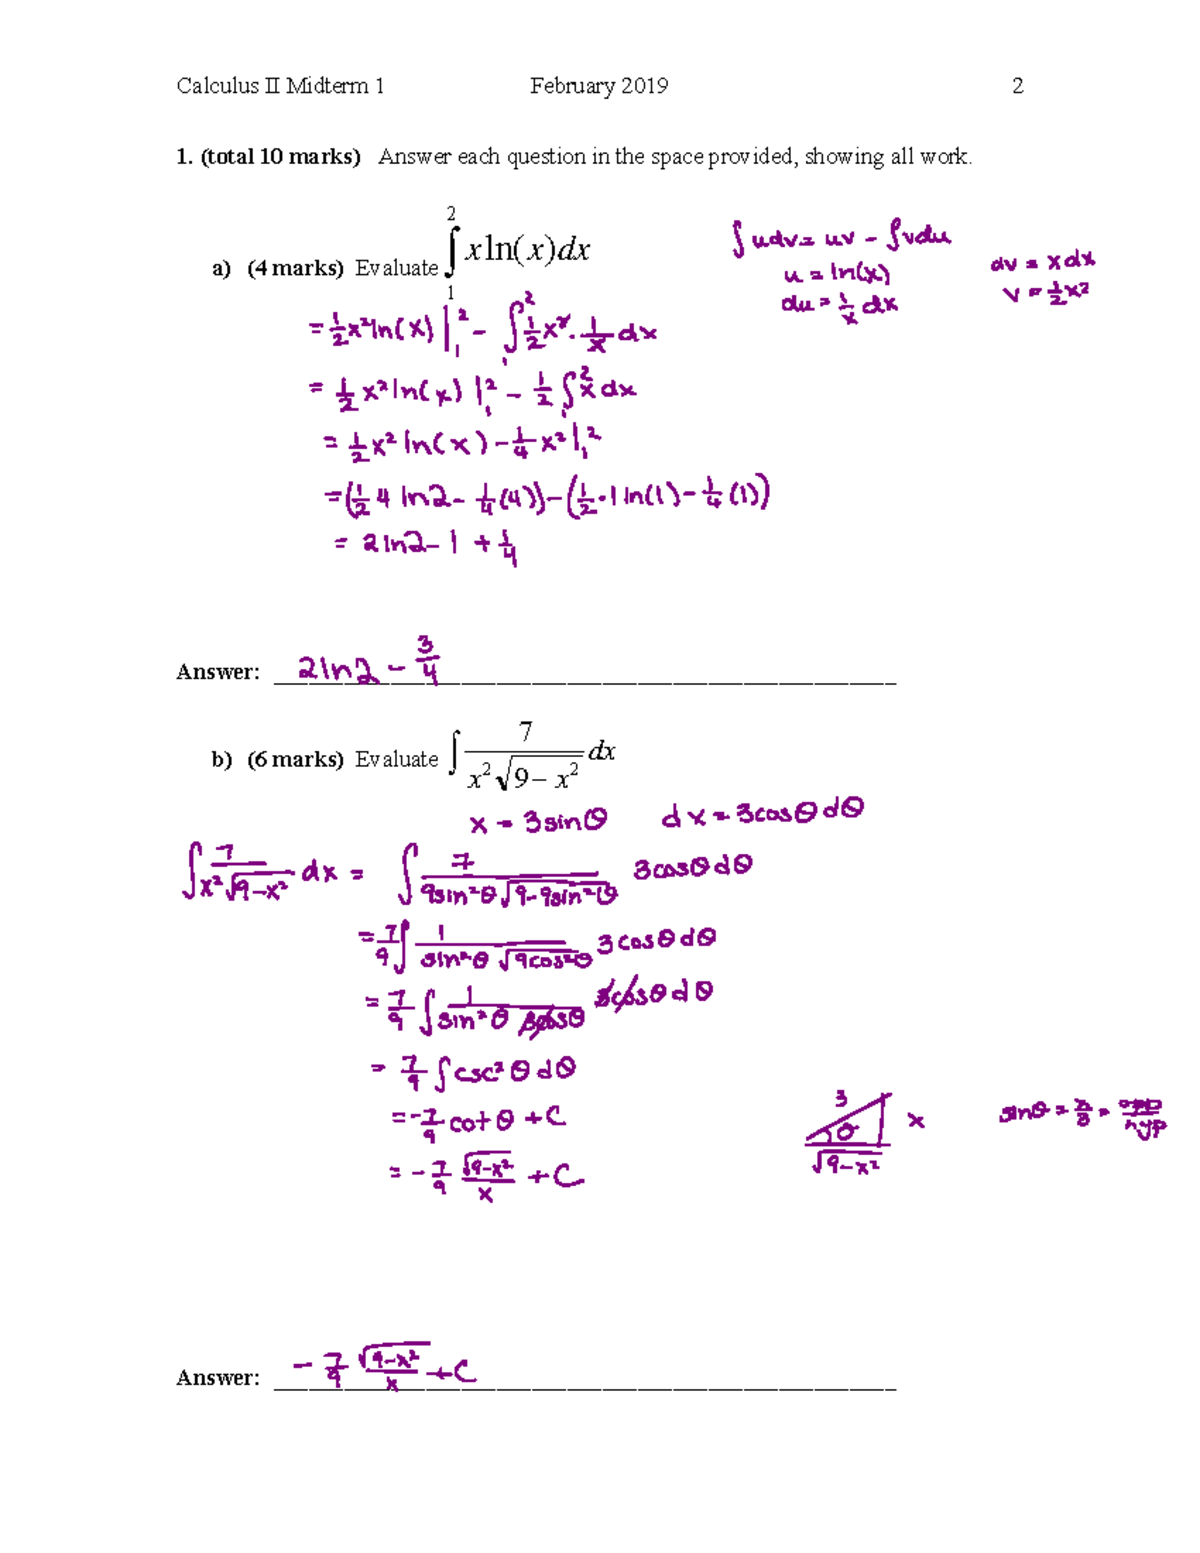 Calculus II Midterm 1 February 2019 2
1. (total 10 marks) Answer each question in the space provided, showing all work.
a) (4 marks) Evaluate ∫₁² x ln(x) dx
∫udv = uv - ∫vdu
u = ln(x) dv = x dx
du = 1/x dx v = 1/2 x²
= 1/2 x² ln(x) |₁² - ∫₁² 1/2 x² · 1/x dx
= 1/2 x² ln(x) |₁² - 1/2 ∫₁² x dx
= 1/2 x² ln(x) - 1/4 x² |₁²
= (1/2 4 ln2 - 1/4 (4)) - (1/2 · 1 ln(1) - 1/4 (1))
= 2 ln2 - 1 + 1/4
Answer: 2 ln2 - 3/4
b) (6 marks) Evaluate ∫ 7/(x²√(9-x²)) dx
x = 3 sinθ dx = 3cosθ dθ
∫ 7/(x²√(9-x²)) dx = ∫ 7/(9sin²θ √(9-9sin²θ)) 3cosθ dθ
= 7/9 ∫ 1/(sin²θ √(9cos²θ)) 3cosθ dθ
= 7/9 ∫ 1/(sin²θ 3cosθ) 3cosθ dθ
= 7/9 ∫ csc²θ dθ
= -7/9 cot θ + C
= - 7/9 √(9-x²)/x + C
3 x θ √(9-x²)
sinθ = x/3 = opp/hyp
Answer: - 7/9 √(9-x²)/x + C